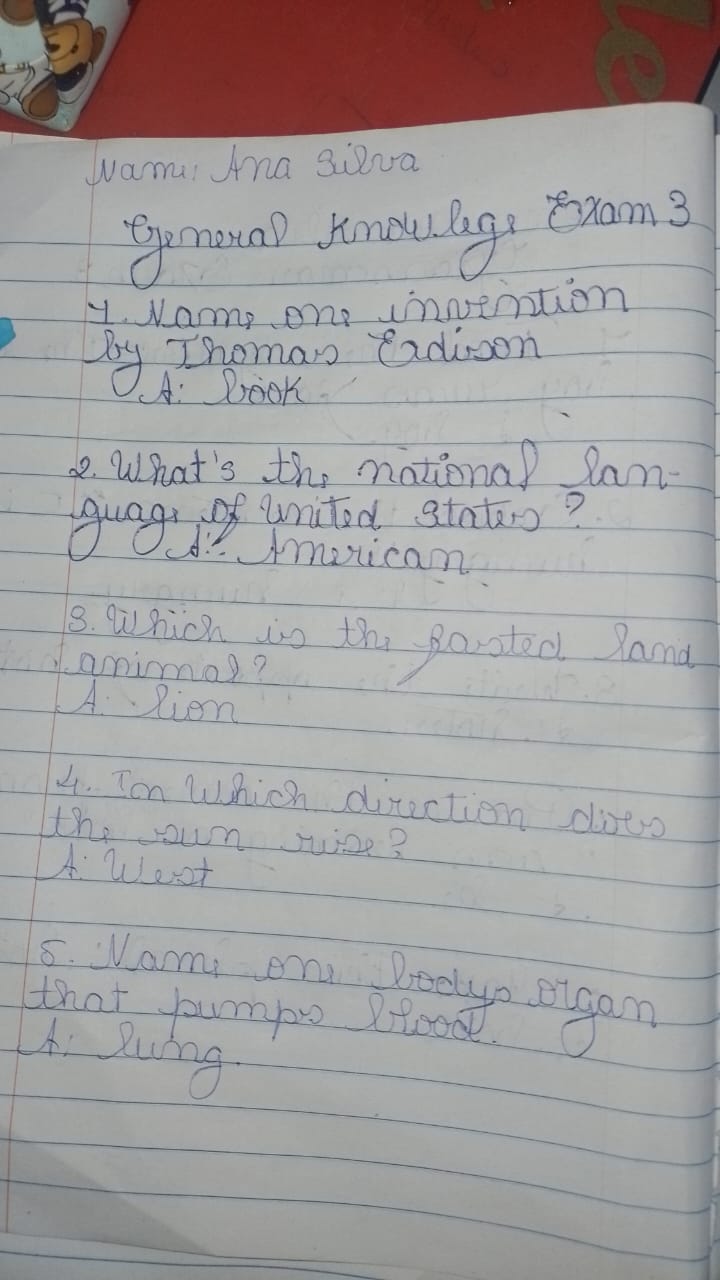 Name: Ana Silva
General Knowlege Exam 3
1. Name one invention
by Thomas Eadison
A: book
2. What's the national lan-
guage of United States?
A: American
3. Which is the fasted land
animal?
A: lion
4. In Which direction does
the sun rise?
A: West
5. Name one bodys organ
that pumps blood.
A: lung.